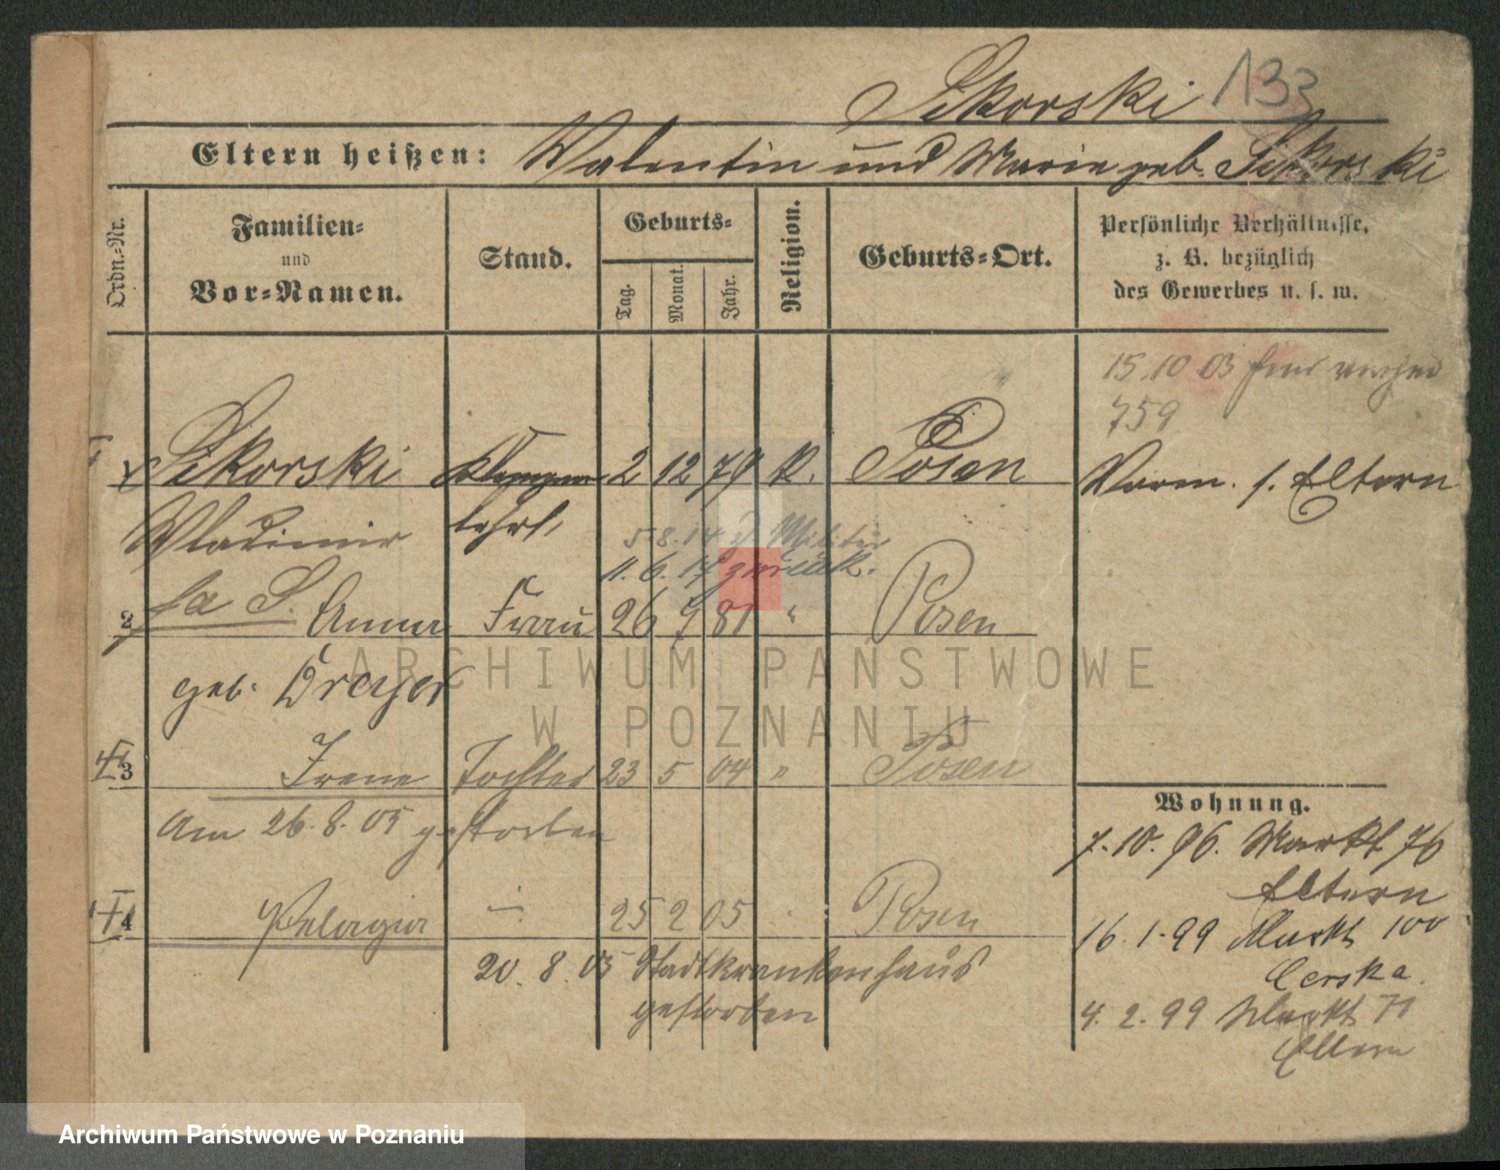 Sikorski 133
Eltern heißen: Valentin und Marie geb. Sikorski
Ordn.-Nr.
Familien-
und
Vor-Namen.
Stand.
Geburts-
Tag.
Monat.
Jahr.
Religion.
Geburts-Ort.
Persönliche Verhältnisse,
z. B. bezüglich
des Gewerbes u. s. w.
15.10 03
759
1 Sikorski Klempner 2 12 79 K. Posen Verm. s. Eltern
Wladimir lehrl.
5.8.14 z Militär
11. 6. 17 zurück.
2 fa S. Anna Frau 26 9 81 " Posen
geb. Dreyer
3 Irene Tochter 23 5 04 " Posen
Am 26.8.05 gestorben
4 Pelagia " 25 2 05 Posen
20. 8. 05 Stadtkrankenhaus
gestorben
Wohnung.
7.10.96. Markt 76
Eltern
16.1.99 Markt 100
Cerska.
4.2.99 Markt 71
Eltern
ARCHIWUM PAŃSTWOWE
W POZNANIU
Archiwum Państwowe w Poznaniu